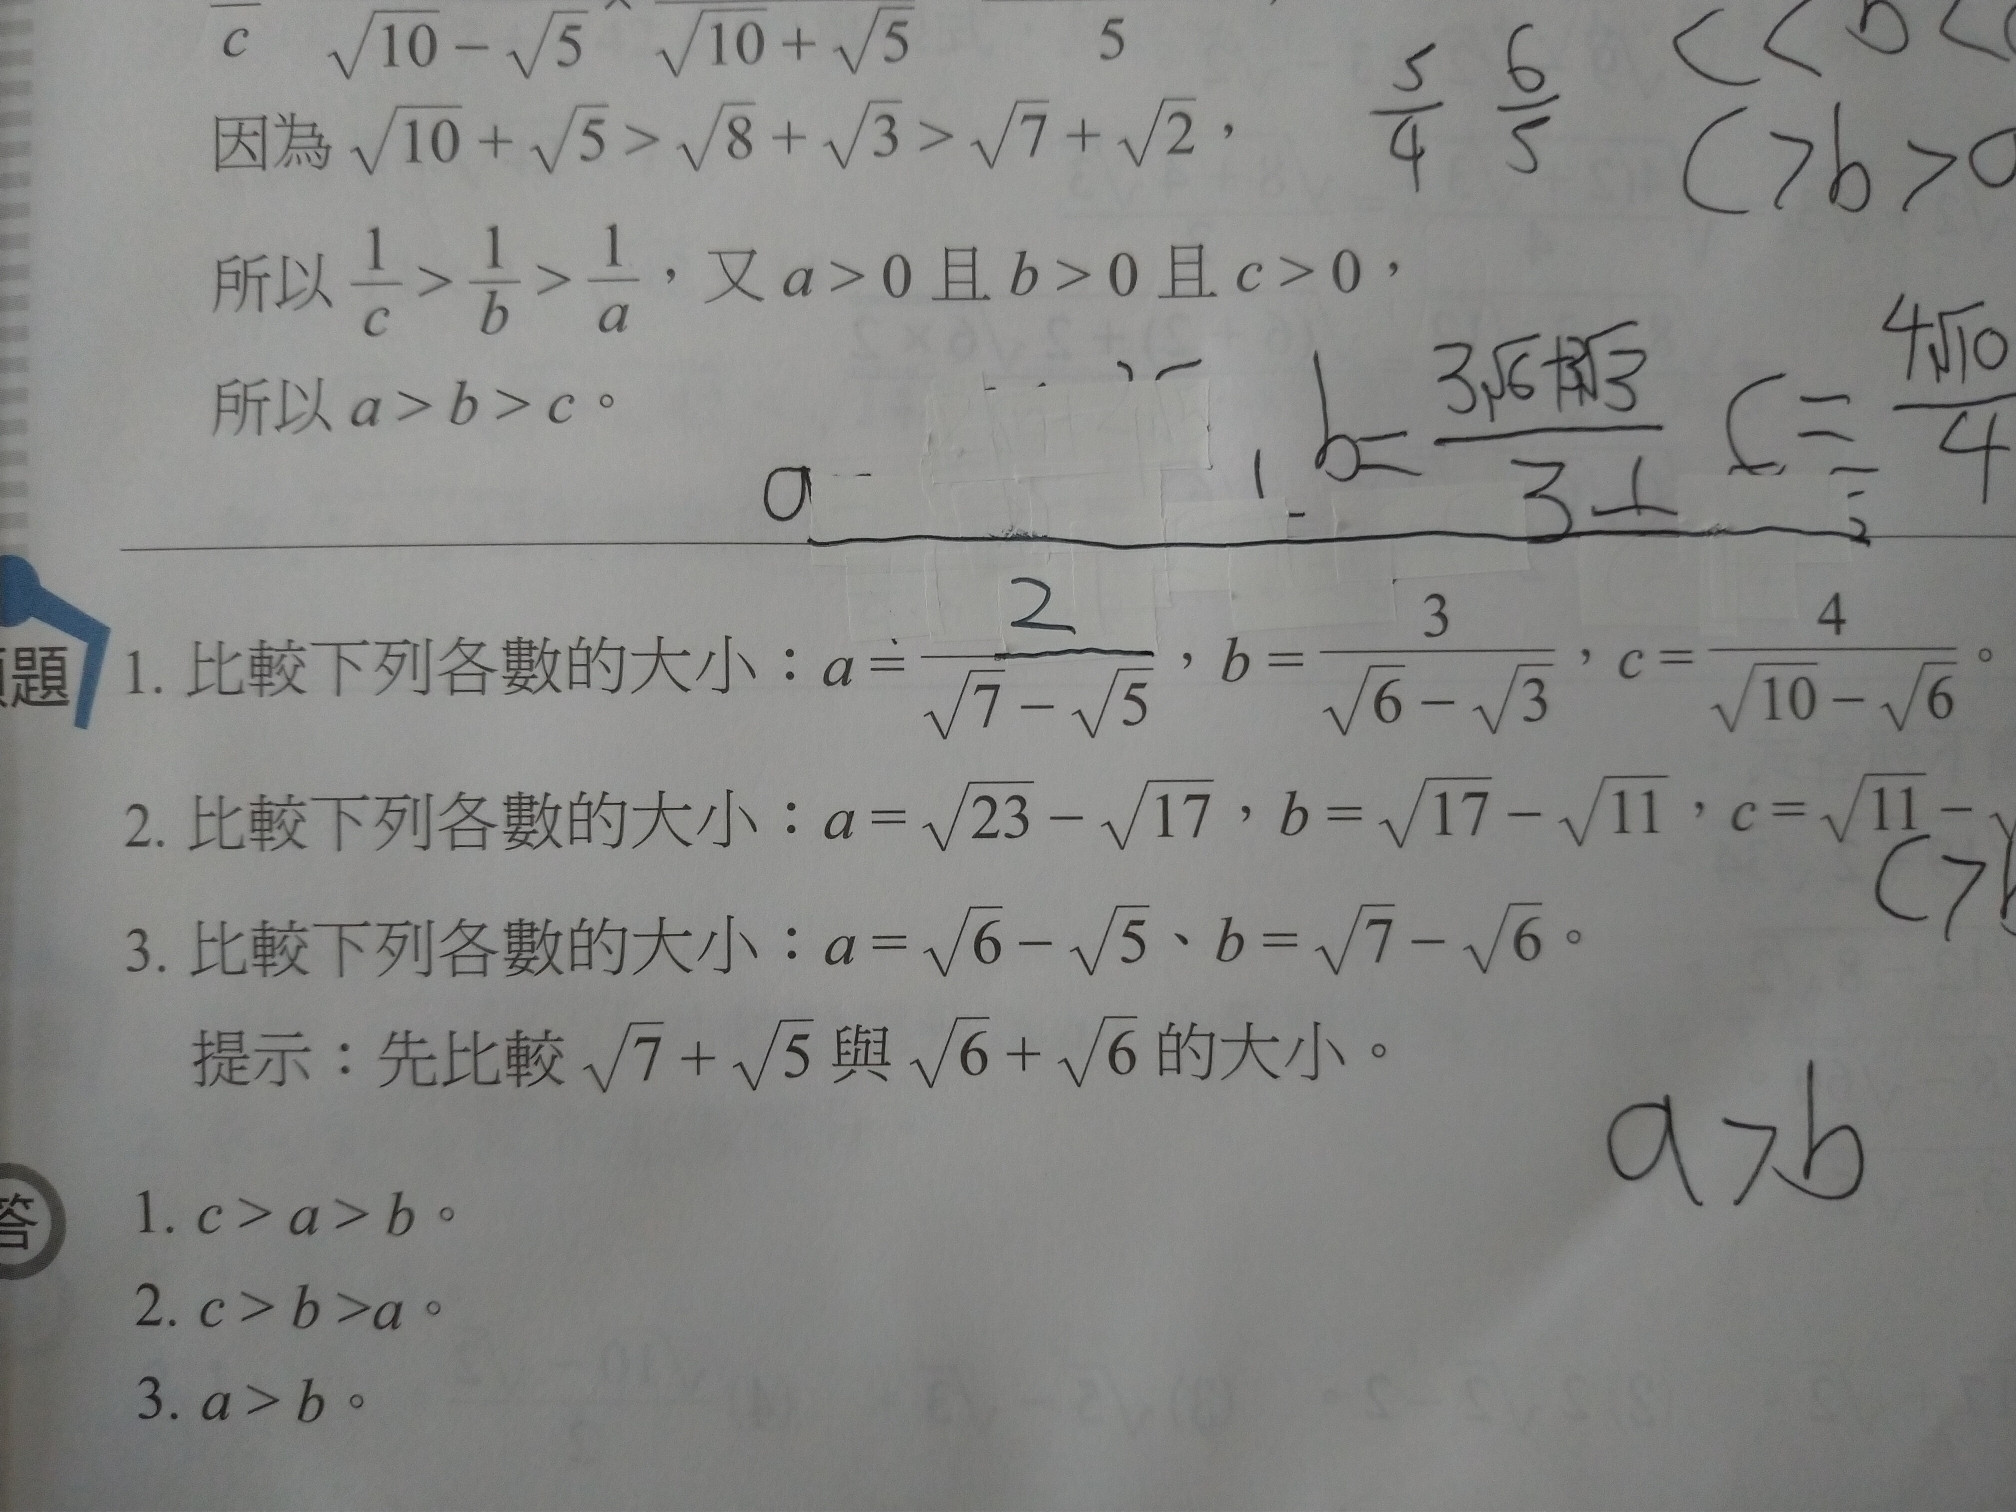 c √10 − √5 √10 + √5 5
5/4 6/5
< < b <
因為 √10 + √5 > √8 + √3 > √7 + √2，
c > b >
所以 1/c > 1/b > 1/a，又 a > 0 且 b > 0 且 c > 0，
所以 a > b > c。
a
b = 3
c = 4√10 / 4
題
1. 比較下列各數的大小：a = 2/(√7 − √5)，b = 3/(√6 − √3)，c = 4/(√10 − √6)。
2. 比較下列各數的大小：a = √23 − √17，b = √17 − √11，c = √11 −
c > b
3. 比較下列各數的大小：a = √6 − √5、b = √7 − √6。
提示：先比較 √7 + √5 與 √6 + √6 的大小。
a > b
答
1. c > a > b。
2. c > b > a。
3. a > b。